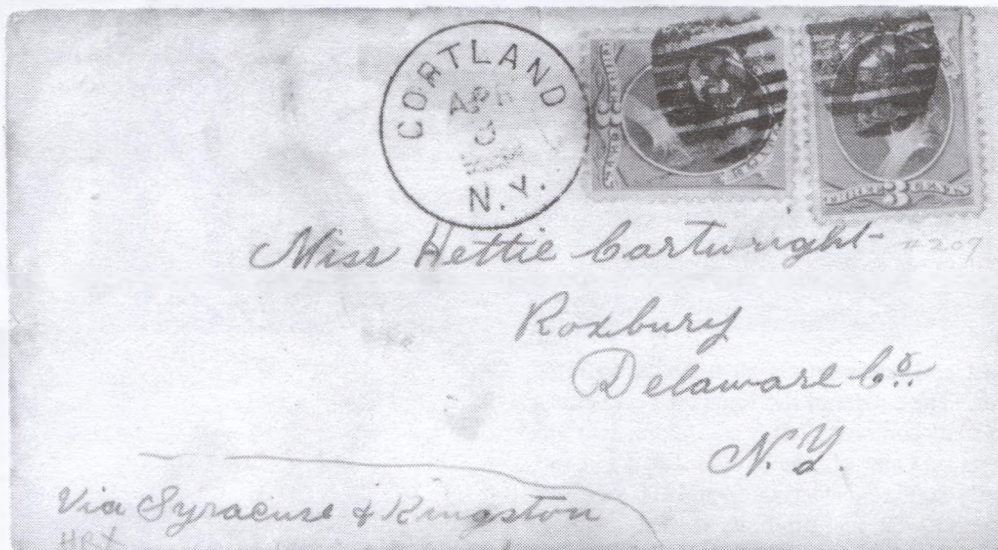 CORTLAND
APR
N.Y.
3
Miss Hettie Cartwright
#207
Roxbury
Delaware Co.
N.Y.
Via Syracuse & Kingston